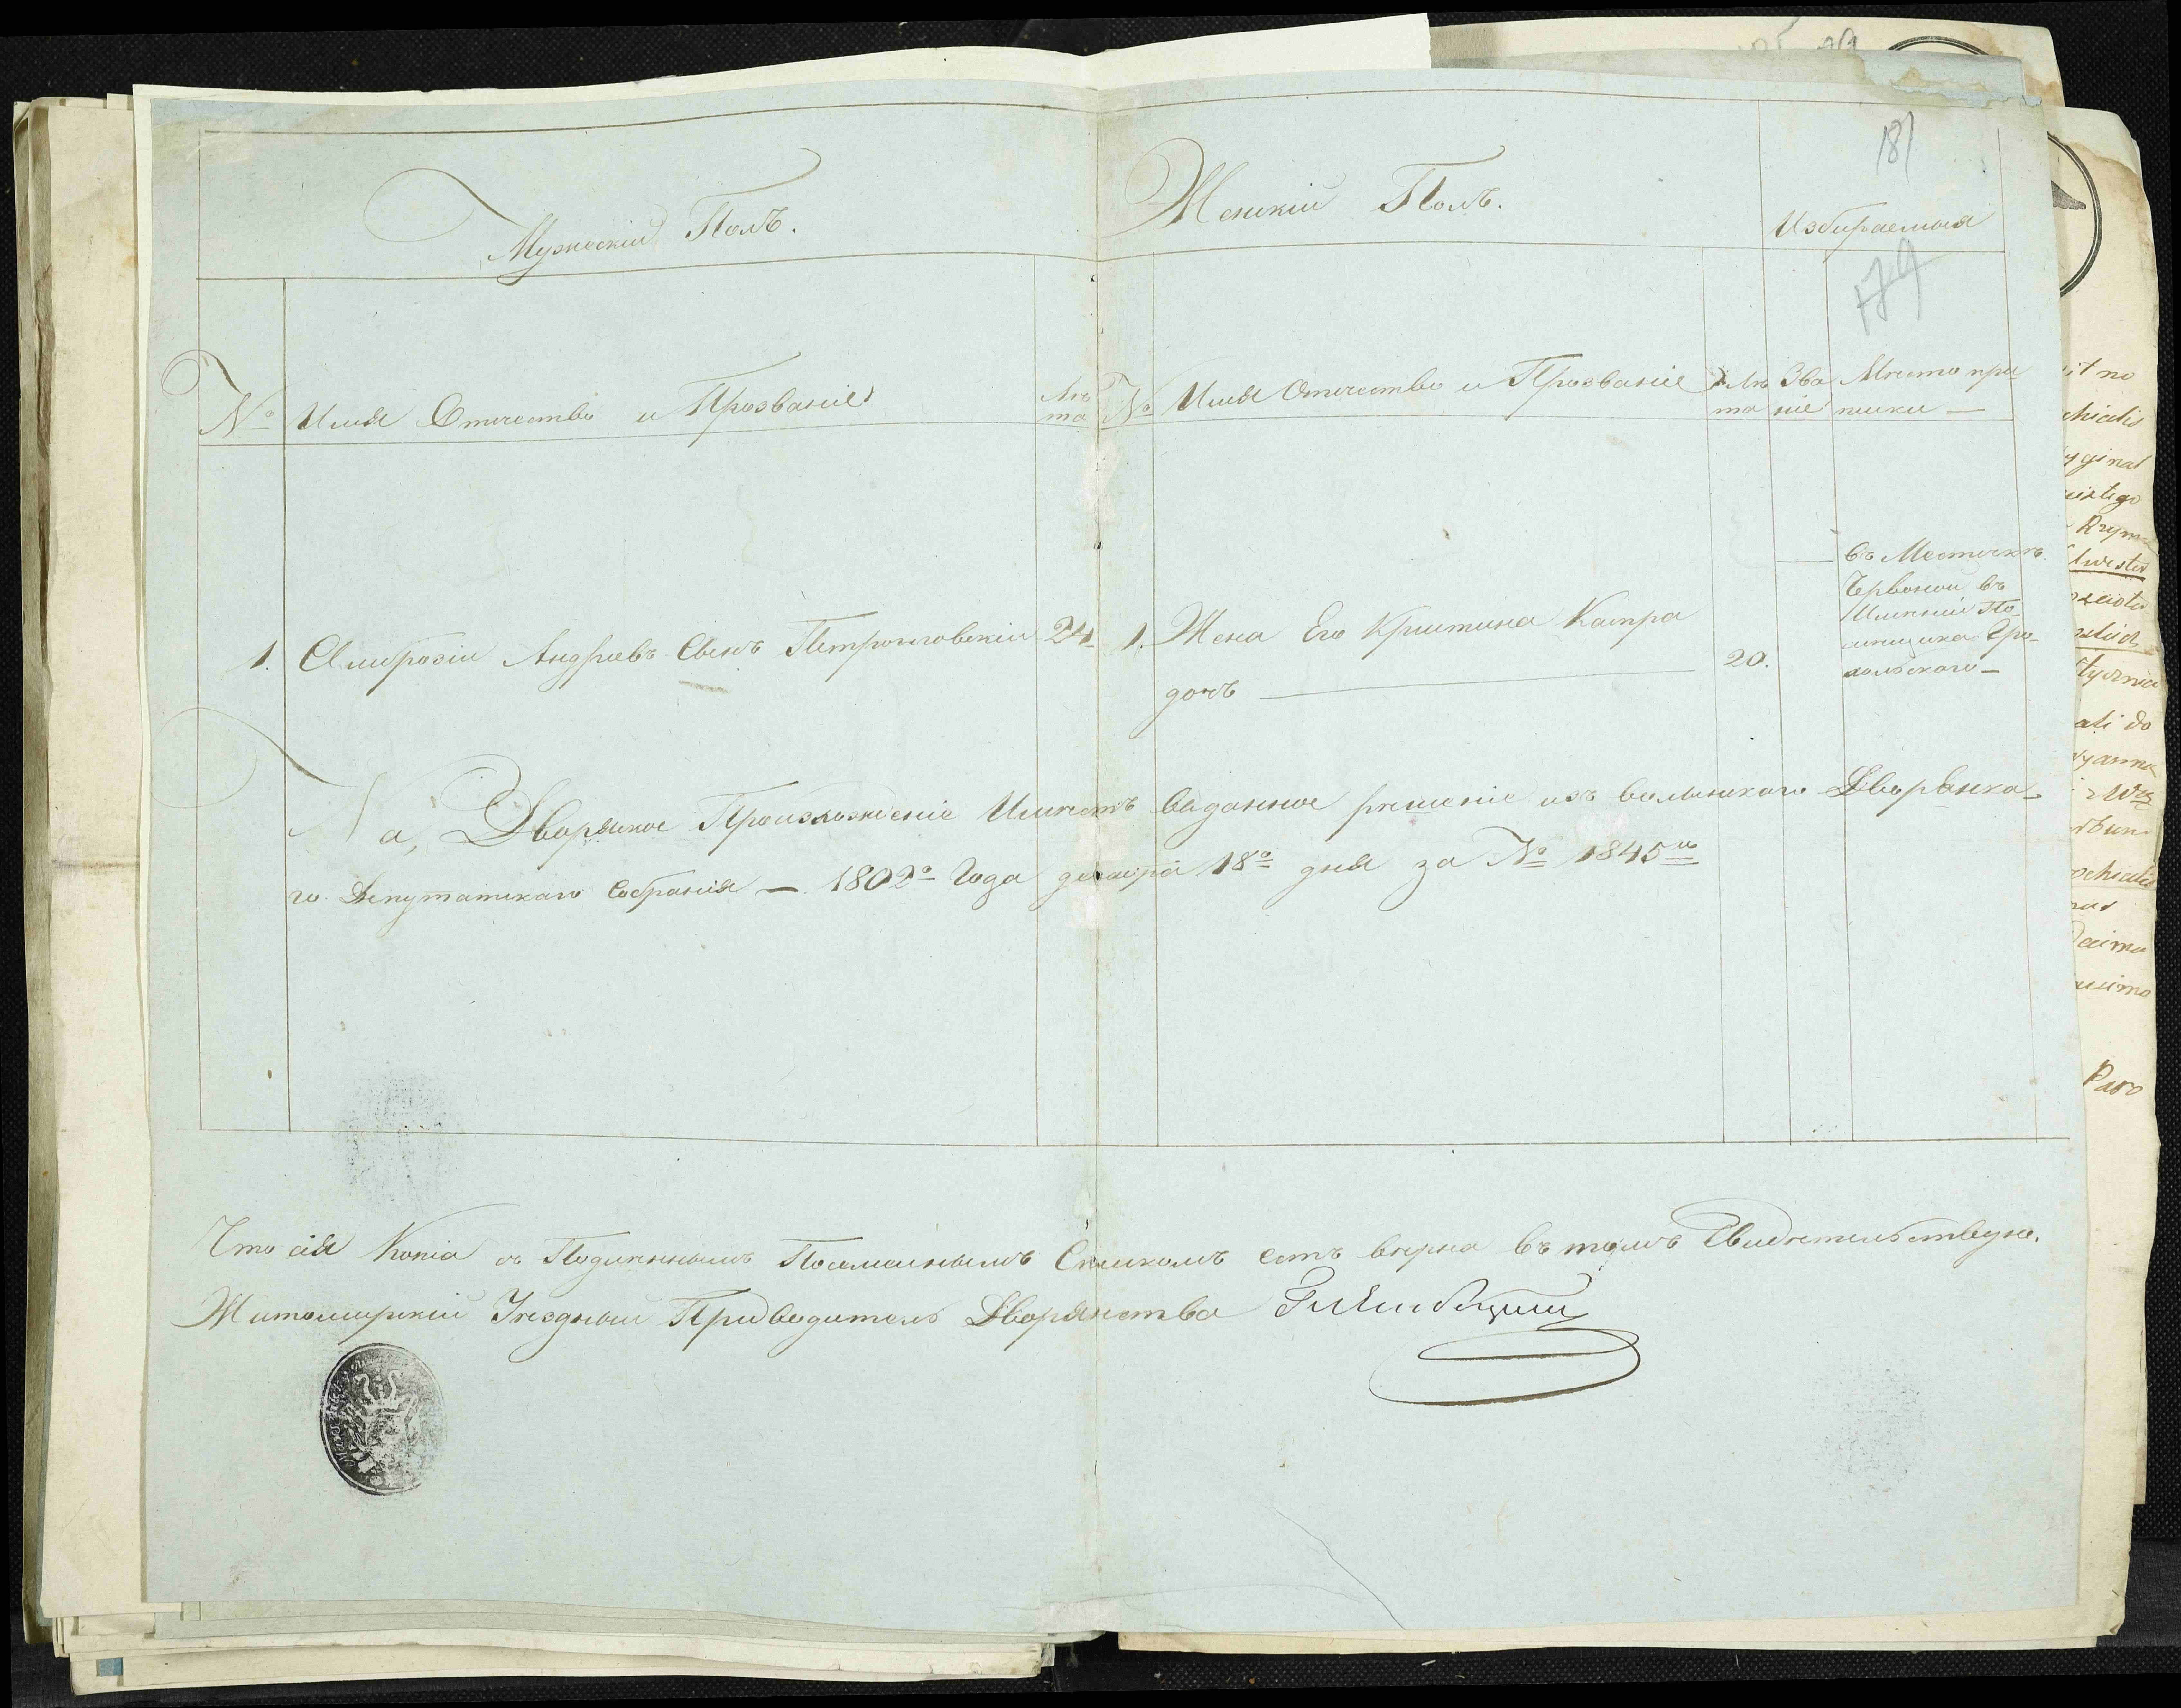 181
Мужескій Полъ.
Женскій Полъ.
Избираемыя
179
№ Имя Отчество и Прозваніе Лѣ
та
№ Имя Отчество и Прозваніе Лѣ
та
Зва
ніе
Место при
писки —
1. Амброзіи Андреевъ Сынъ 24
1. Жена Его Кристина Кастра
дочь — 20.
въ Местечкѣ
Червоной въ
Имѣніи По
мещика Гро
хольскаго —
На, Дворянское Происхожденіе Имѣетъ виданное решеніе изъ волынскаго Дворянска
го Депутатскаго Собранія — 1802го Года декабря 18го дня за № 1845м
Что сія Копія съ Подлиннымъ Посемейнымъ Спискомъ есть вѣрна въ томъ Свидѣтельствую.
Житомирскій Уездный Предводитель Дворянства
it no
chialis
yginal
Rzym
ali do
Paro